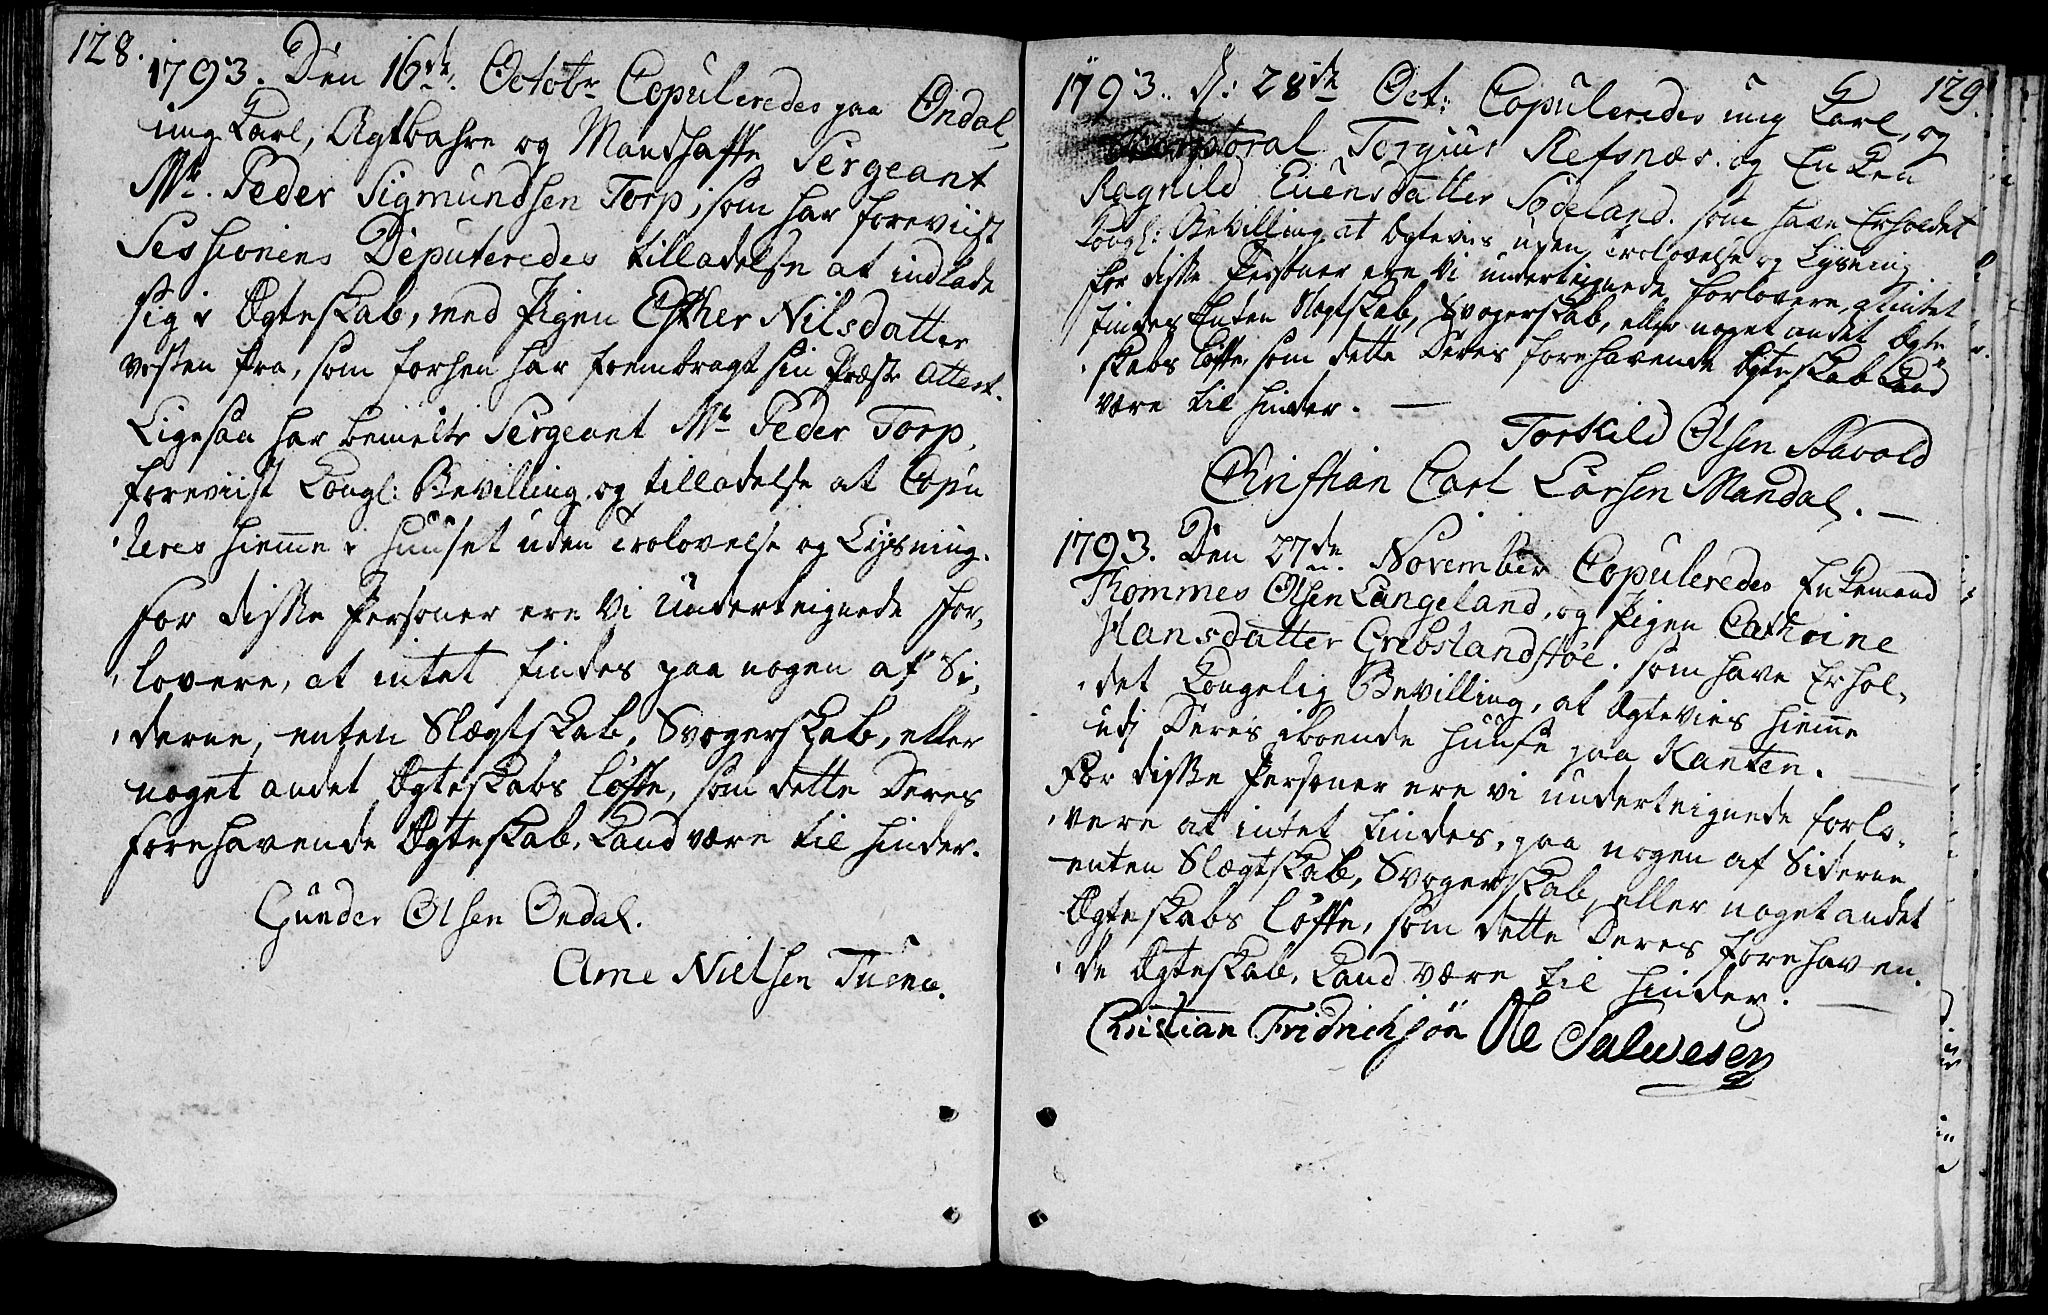 128.
1793. Den 16de. Octobr Copuleredes paa Ondal,
ung Karl, Agtbahre og Mandhaffte Sergeant
Mr. Peder Sigmundsen Torp, som har foreviist
Sessionens Deputeredes tilladelse at indlade
sig i Ægteskab, med Pigen Esther Nilsdatter
vesten fra, som forhen har frembragt sin Præste Attest.
Ligesaa har bemelte Sergeant Mr Peder Torp,
foreviist Kongl: Bevilling og tilladelse at Copu
leres hiemme i Huuset uden trolovelse og Lysning.
For disse Personer ere Vi Underteignede For,
lovere, at intet findes paa nogen af Si,
derne, enten Slægtskab, Svogerskab, eller
noget andet Ægteskabs løfte, som dette Deres
forehavende Ægteskab, Kand være til hinder.
Gunder Olsen Ondal.
Arne Nielsen
129.
1793. D: 28de Oct: Copuleredes ung Karl, og
Corporal Tergius Refsnæs. og Enken
Ragnild Euensdatter Sødeland. som have Erholdet
Kongl: Bevilling at Ægtevies uden trolovelse og Lysning
for disse Personer ere Vi underteignede Forlovere, at intet
findes Enten Slægtskab, Svogerskab, eller noget andet Ægte
skabs løfte, som dette Deres forehavende Ægteskab Kand
være til hinder. —
Torkild Olsen
Christian Carl Larsen Mandal. —
1793. Den 27de. November Copuleredes Enkemand
Thommes Olsen Langeland, og Pigen Cathrine
Hansdatter Gribslandstøe. som have Erhol,
det Kongelig Bevilling, at Ægtevies hiemme
udj Deres iboende Huuse paa Kanten. —
For disse Personer ere vi underteignede forlo,
vere at intet findes, paa nogen af Siderne
enten Slægtskab, Svogerskab, eller noget andet
Ægteskabs løfte, som dette Deres forehaven,
de Ægteskab, Kand være til hinder. —
Christian Fridrichsøn Ole Salwesen